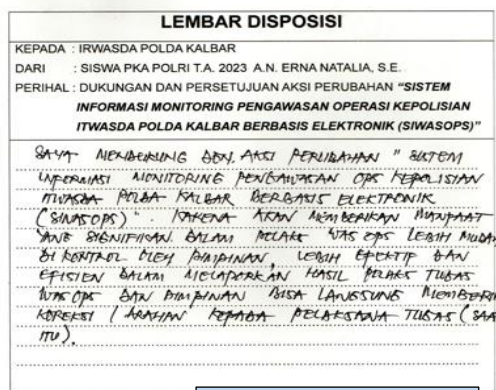 LEMBAR DISPOSISI
KEPADA : IRWASDA POLDA KALBAR
DARI : SISWA PKA POLRI T.A. 2023 A.N. ERNA NATALIA, S.E.
PERIHAL : DUKUNGAN DAN PERSETUJUAN AKSI PERUBAHAN "SISTEM
INFORMASI MONITORING PENGAWASAN OPERASI KEPOLISIAN
ITWASDA POLDA KALBAR BERBASIS ELEKTRONIK (SIWASOPS)"
SAYA MENDUKUNG DGN. AKSI PERUBAHAN "SISTEM
INFORMASI MONITORING PENGAWASAN OPS KEPOLISIAN
ITWASDA POLDA KALBAR BERBASIS ELEKTRONIK
(SIWASOPS)". KARENA AKAN MEMBERIKAN MANFAAT
YANG SIGNIFIKAN DALAM PELAKS WAS OPS LEBIH MUDAH
DI KONTROL OLEH PIMPINAN, LEBIH EFEKTIF DAN
EFISIEN DALAM MELAPORKAN HASIL PELAKS TUGAS
WAS OPS DAN PIMPINAN BISA LANGSUNG MEMBERI
KOREKSI / ARAHAN KEPADA PELAKSANA TUGAS (SAAT
ITU).